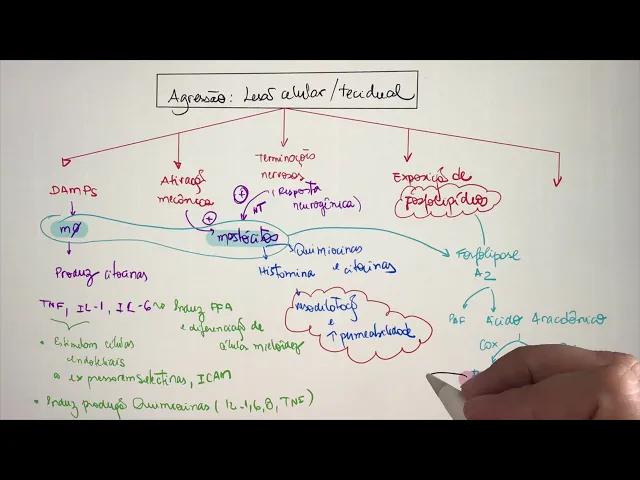 Agressão: Lesão celular/tecidual
DAMPs
Ativação
mecânica
Terminações
nervosas
(Resposta
neurogênica)
Exposição de
fosfolipídios
+
+
HT
mø
mastócitos
Produz citocinas
Histamina
Quimiocinas
e citocinas
Fosfolipase
A2
TNF, IL-1, IL-6 → Induz FFA
e diferenciação de
células mielóides
vasodilatação
e
↑ permeabilidade
PAF
Ácido Aracdônico
Cox
• Estimulam células
endoteliais
a expressarem selectinas, ICAM
• Induz produção Quimiocinas (IL-1,6,8, TNF)